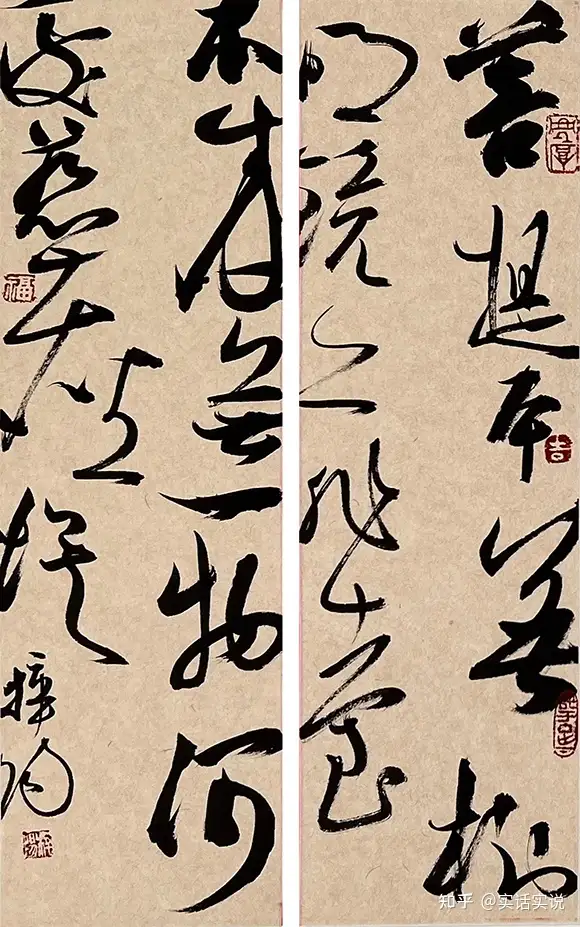 菩提本無樹
明鏡亦非臺
本來無一物何
處惹塵埃
福
吉
知乎 @实话实说